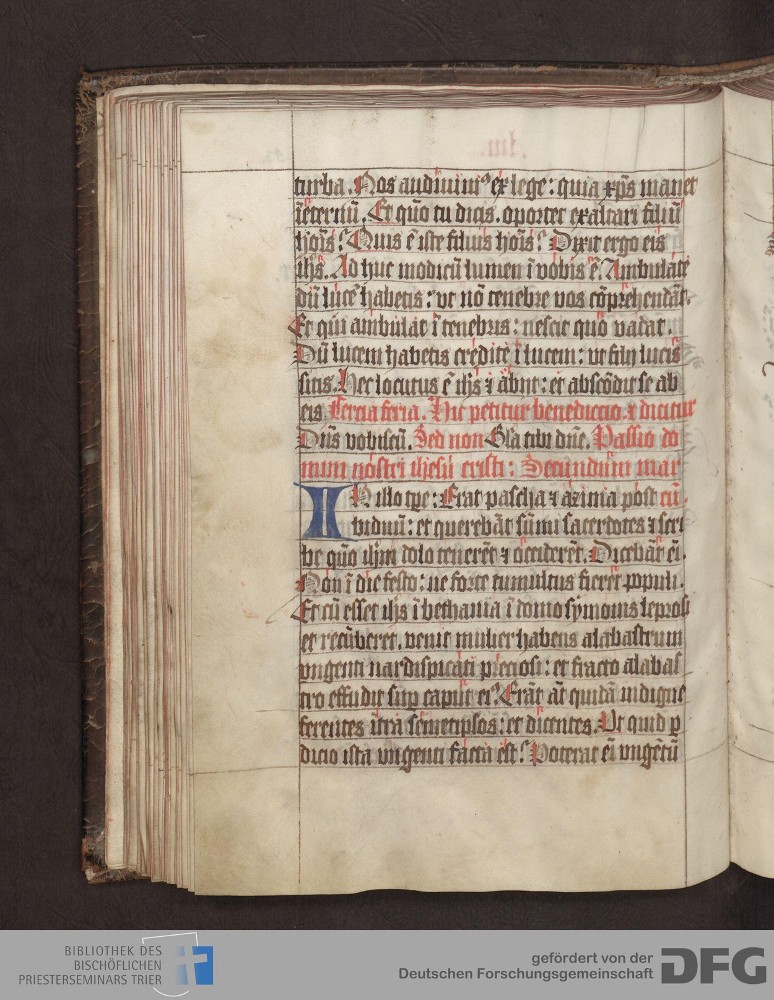 turba. Nos audiuim⁹ ex lege: quia xp̄s manet
ī eternū. Et quō tu dicis. oportet exaltari filiū
hoīs? Quis ē iste filius hoīs? Dixit ergo eis
ih̄s. Ad huc modicū lumen ī vobis ē. Ambulate
dū lucē habetis: vt nō tenebre vos cōprehendāt.
Et qui ambulat ī tenebris: nescit quo vadat.
Dū lucem habetis credite ī lucem: vt filij lucis
sitis. Hec locutus ē ih̄s ⁊ abijt: et abscōdit se ab
eis. Tercia feria. Hic petitur benediccio. ⁊ dicitur
Dn̄s vobiscū. Sed non Gl̄a tibi dn̄e. Passio do
mini nostri ihesu cristi: Secundum mar
IN illo tp̄e: Erat pascha ⁊ azima post cū.
biduū: et querebāt sūmi sacerdotes ⁊ scri
be quō ih̄m dolo tenerēt ⁊ occiderēt. Dicebāt ei.
Non ī die festo: ne forte tumultus fieret populi.
Et cū esset ih̄s ī bethania ī domo symonis leprosi
et recūberet. venit mulier habens alabastrum
vngenti nardi spicati preciosi: et fracto alabas
tro effudit sup caput ei⁹. Erāt āt quidā indigne
ferentes ītra semetipsos: et dicentes. Vt quid p
dicio ista vngenti facta est? Poterat ei vngētū
BIBLIOTHEK DES
BISCHÖFLICHEN
PRIESTERSEMINARS TRIER
gefördert von der
Deutschen Forschungsgemeinschaft
DFG